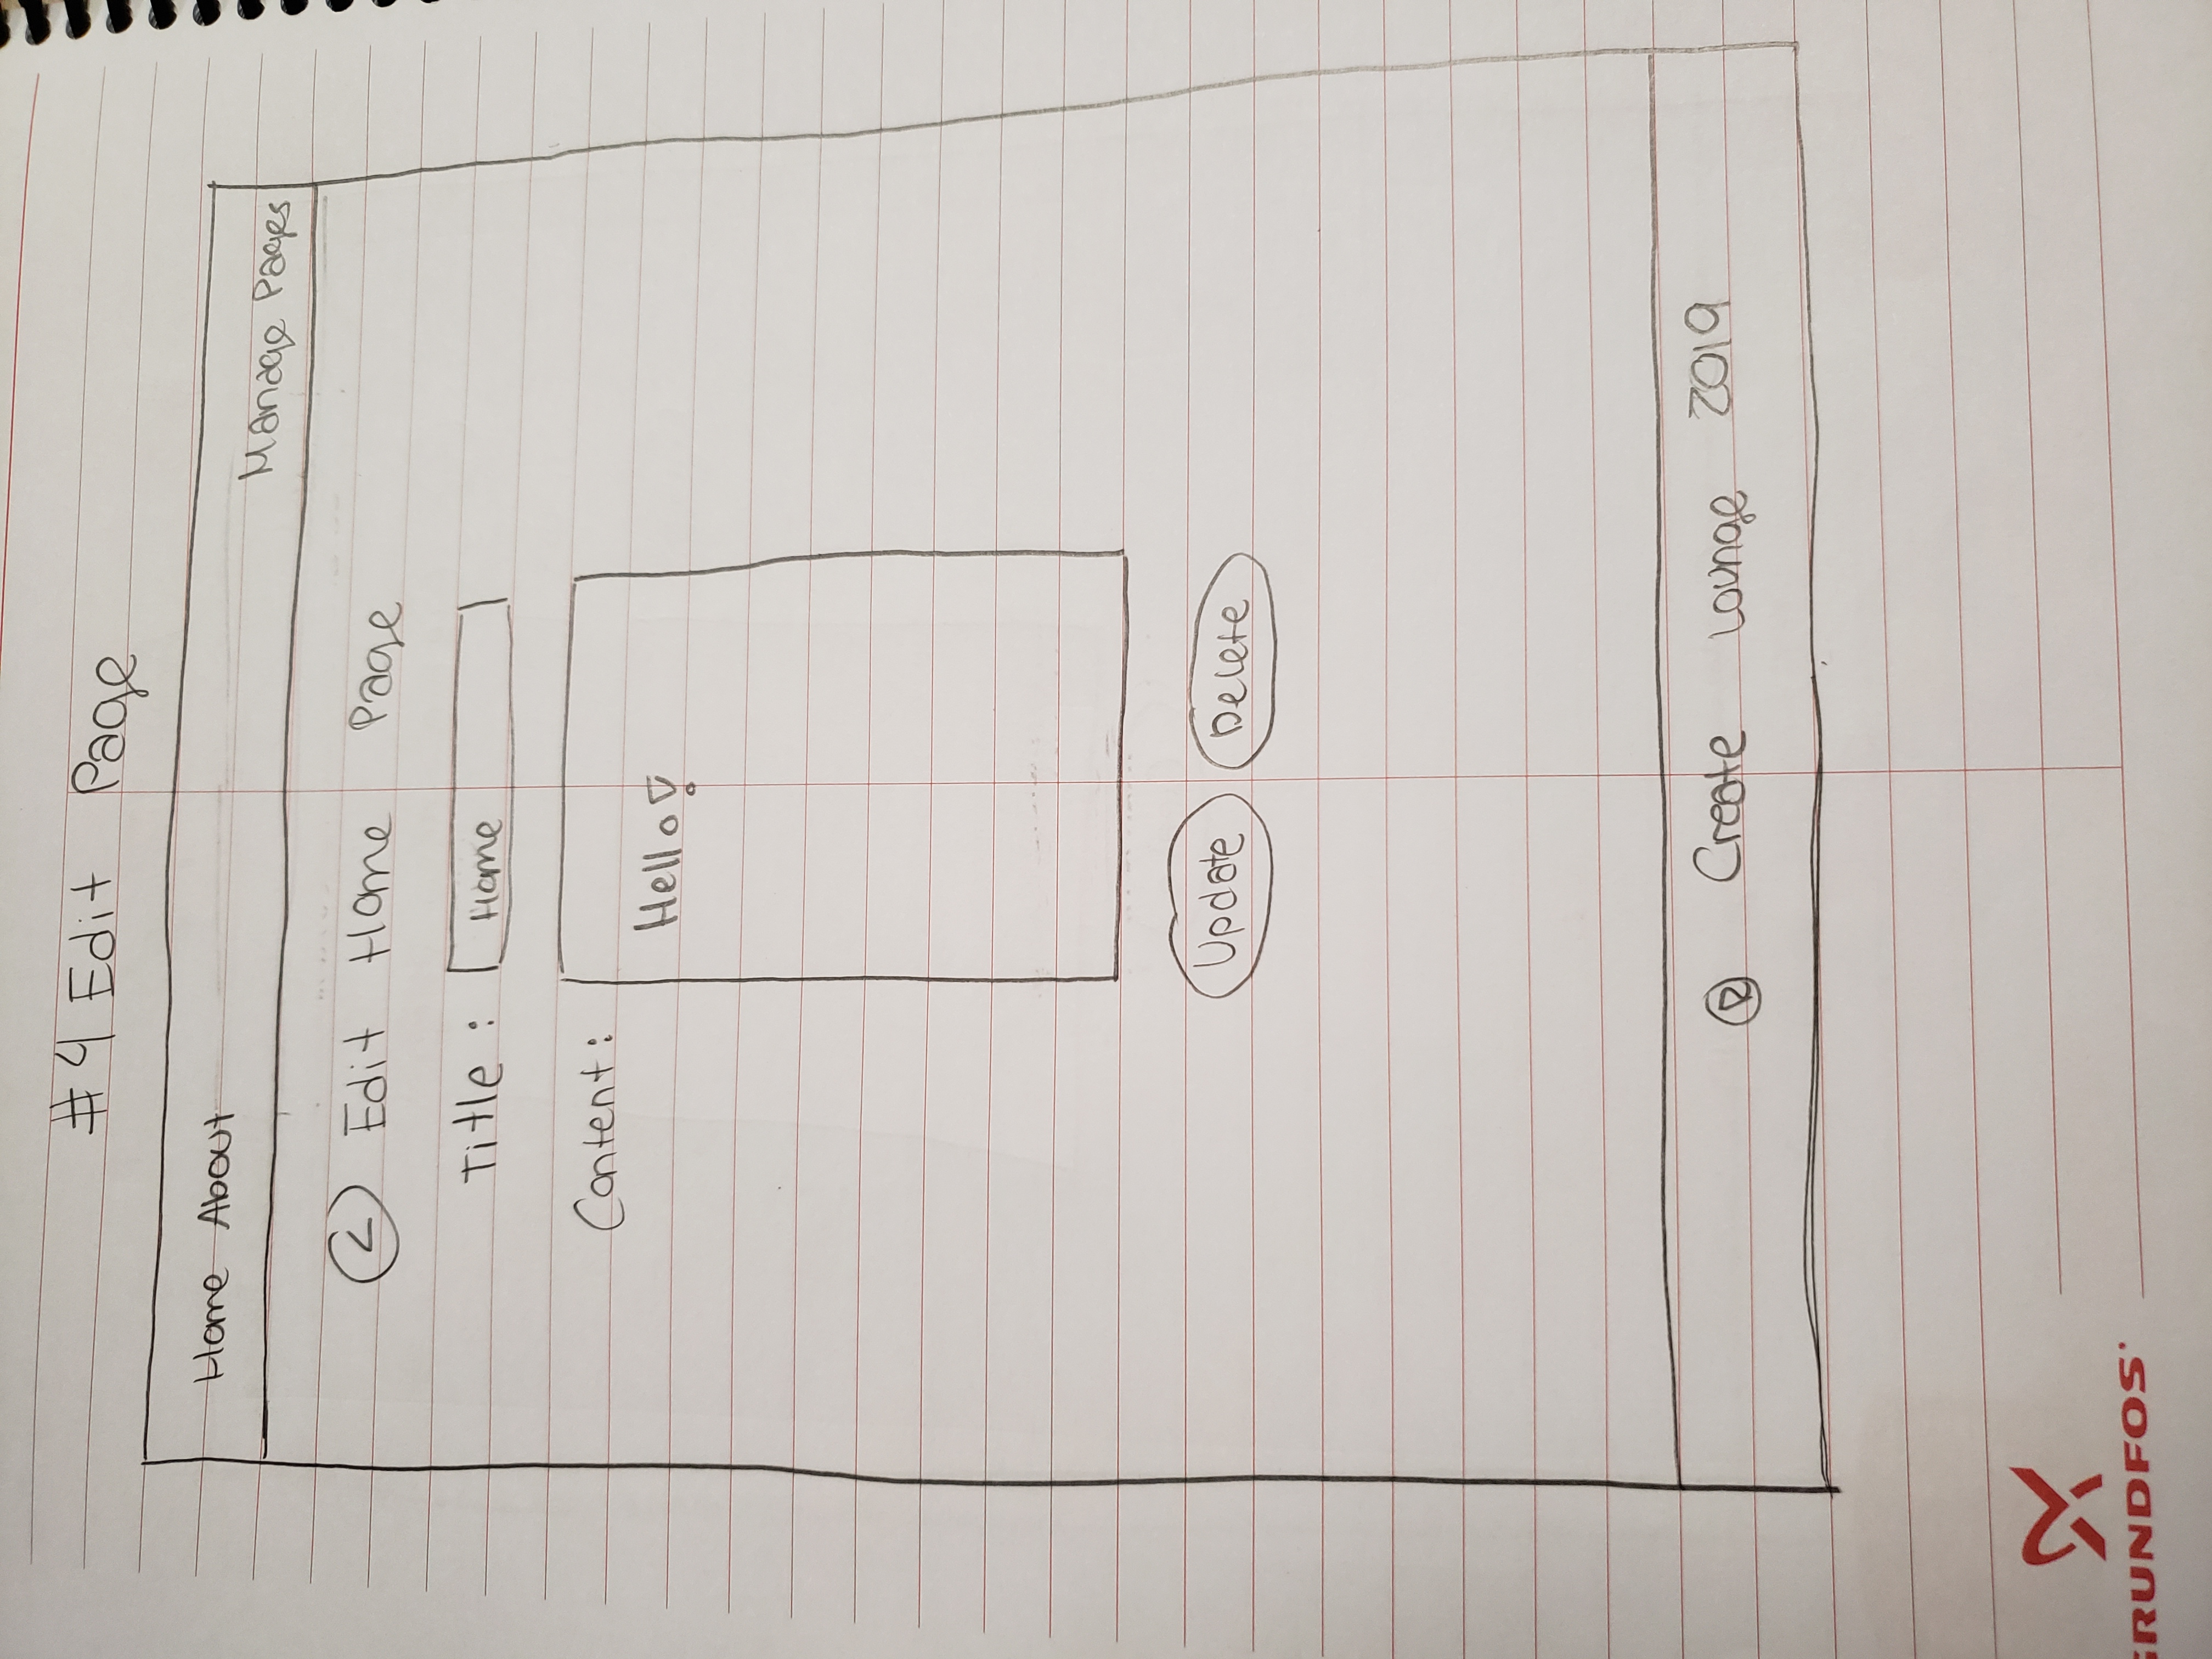 #4 Edit Page
Home About
Manage Pages
< Edit Home Page
Title : Home
Content:
Hello!
Update Delete
® Create Lounge 2019
GRUNDFOS